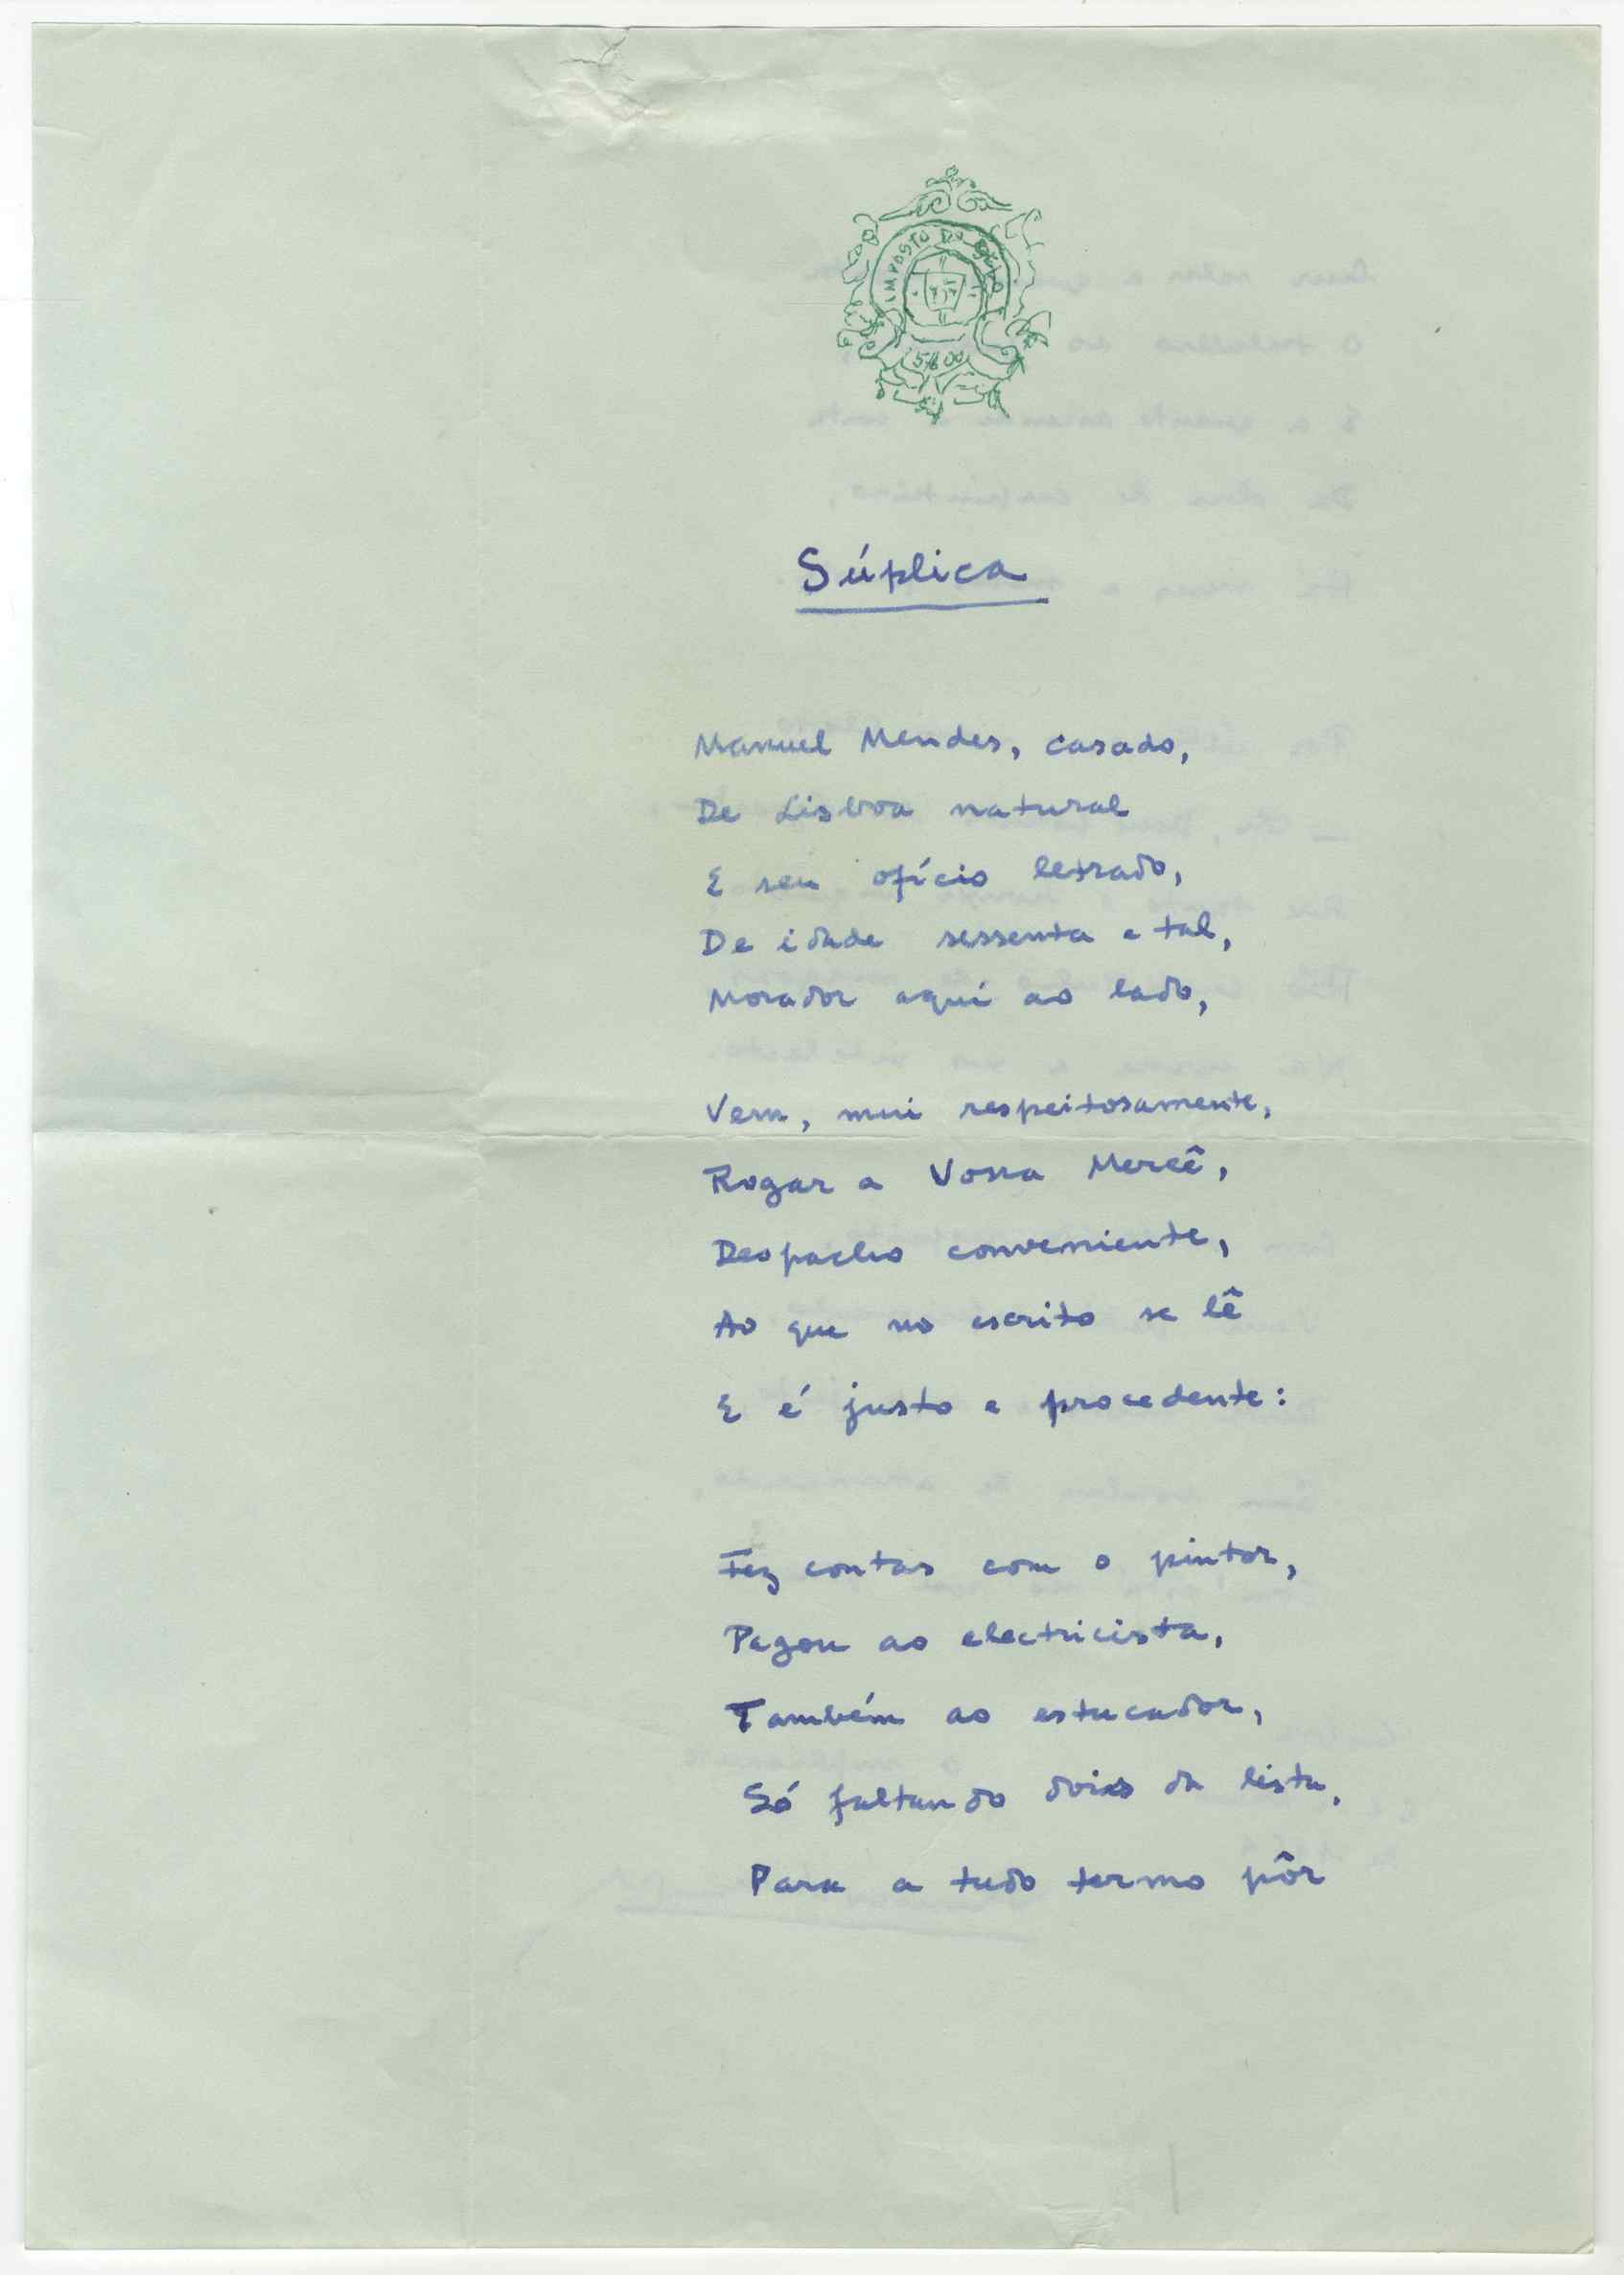 IMPOSTO DO SELO
5$00
Súplica
Manuel Mendes, casado,
De Lisboa natural
E seu ofício letrado,
De idade sessenta e tal,
Morador aqui ao lado,
Vem, mui respeitosamente,
Rogar a Vossa Mercê,
Despacho conveniente,
Ao que no escrito se lê
E é justo e procedente:
Fez contas com o pintor,
Pagou ao electricista,
Também ao estucador,
Só faltando dois da lista,
Para a tudo termo pôr